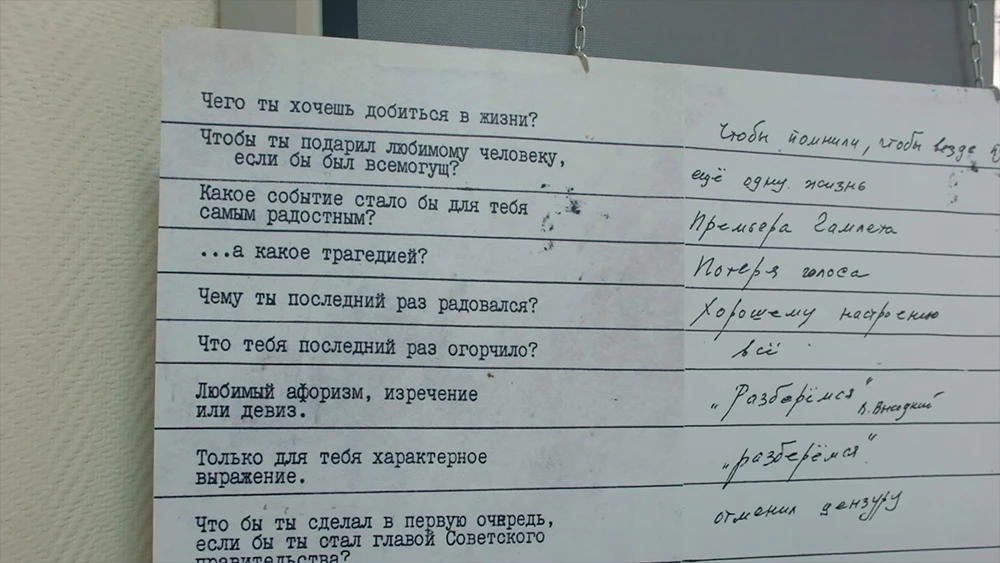 Чего ты хочешь добиться в жизни?
Чтобы помнили, чтобы везде
Чтобы ты подарил любимому человеку,
если бы был всемогущ?
ещё одну жизнь
Какое событие стало бы для тебя
самым радостным?
Премьера Гамлета
...а какое трагедией?
Потеря голоса
Чему ты последний раз радовался?
Хорошему настроению
Что тебя последний раз огорчило?
всё
Любимый афоризм, изречение
или девиз.
„Разберёмся“
В. Высоцкий
Только для тебя характерное
выражение.
„разберёмся“
Что бы ты сделал в первую очередь,
если бы ты стал главой Советского
правительства?
отменил цензуру